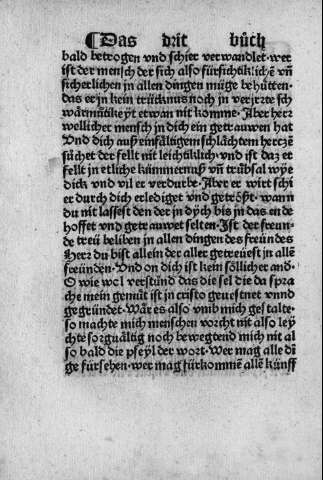 Das drit bůch
bald betrogen vnd schier verwandlet·wer
ist der mensch der sich also fürsichtiklichē vñ
sicherlichen in allen dingen müge behütten·
das er jn kein trücknus noch in verjrzte sch
wärmůtikeyt etwan nit komme·Aber herz
wellicher mensch in dich ein getrauwen hat
Vnd dich auß einfältigem schlächtem hertzē
sůchet der fellt nit leichtiklich·vnd ist daz er
fellt jn etliche kümmernuß vñ trůbsal wye
dick vnd vil er verdurbe·Aber er wirt schi
er durch dich erlediget vnd getrößt·wann
du nit lassest den der in dych bis in das ende
hoffet vnd getrauwet selten·Ist der freun
de treü beliben in allen dingen des freündes
Herz du bist allein der aller getreüest in allē
freünden·Vnd on dich ist kein söllicher and·
O wie wol verstůnd das die sel die da spra
che mein gemüt ist jn cristo geuestnet vnnd
gegründet·Wär es also vmb mich gestalte·
so machte mich menschen vorcht nit also ley
chte sorguältig noch bewegtend mich nit al
so bald die pfeyl der wort·Wer mag alle dī
ge fürsehen·wer mag fürkommē allē künff